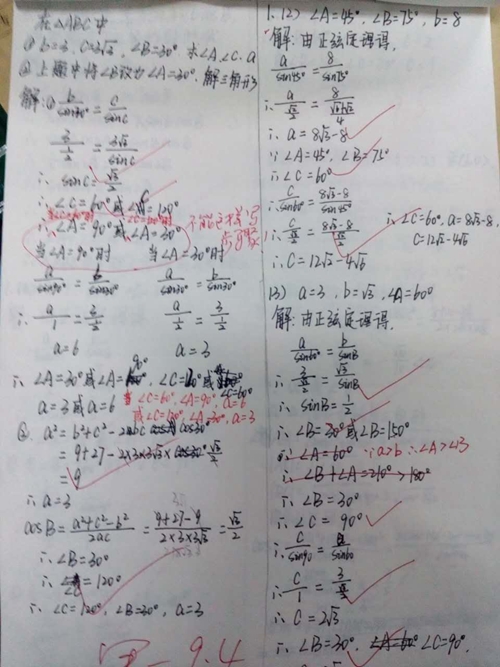 在△ABC中
① b=3, C=3√3, ∠B=30° 求∠A,∠C,a
② 上题中将∠B改为∠A=30°,解三角形
解:① b/sin30° = c/sinC
3/(1/2) = 3√3/sinC
∴ sinC=√3/2
∴ ∠C=60°或 120°
∴ ∠A=90°或∠A=30°
当∠A=90°时 当∠A=30°时
不能这样写
a/sin90° = b/sin30° a/sin30° = b/sin30°
∴ a/1 = 3/(1/2) a/(1/2) = 3/(1/2)
a=6 a=3
∴ ∠A=30°或∠A=90°, ∠C=120°或∠C=60°
a=3或a=6
∠C=60°,∠A=90°,a=6
或∠C=120°,∠A=30°,a=3
② a²=b²+c²-2bc cos30°
=9+27-2×3×3√3×√3/2
=9
∴ a=3
cosB= (a²+c²-b²)/2ac = (9+27-9)/(2×3×3√3) = √3/2
∴ ∠B=30°
∴ ∠C=120°
∴ ∠C=120°, ∠B=30°, a=3
9.4
1.(2) ∠A=45°, ∠B=75°, b=8
解:由正弦定理得,
a/sin45° = 8/sin75°
∴ a/(√2/2) = 8/((√6+√2)/4)
∴ a=8√3-8
∵ ∠A=45°, ∠B=75°
∴ ∠C=60°
∴ C/sin60° = (8√3-8)/sin45°
∴ C/(√3/2) = (8√3-8)/(√2/2)
∴ C=12√2-4√6
∴ ∠C=60°, a=8√3-8
C=12√2-4√6
(3) a=3, b=√3, ∠A=60°
解:由正弦定理得,
a/sin60° = b/sinB
∴ 3/(√3/2) = √3/sinB
∴ sinB=1/2
∴ ∠B=30°或∠B=150°
∵ ∠A=60° ∵a>b ∴∠A>∠B
∴ ∠B+∠A=210°>180°
∴ ∠B=30°
∴ ∠C=90°
∴ C/sin90 = a/sin60
∴ C/1 = 3/(√3/2)
∴ C=2√3
∴ ∠B=30°, ∠C=90°,